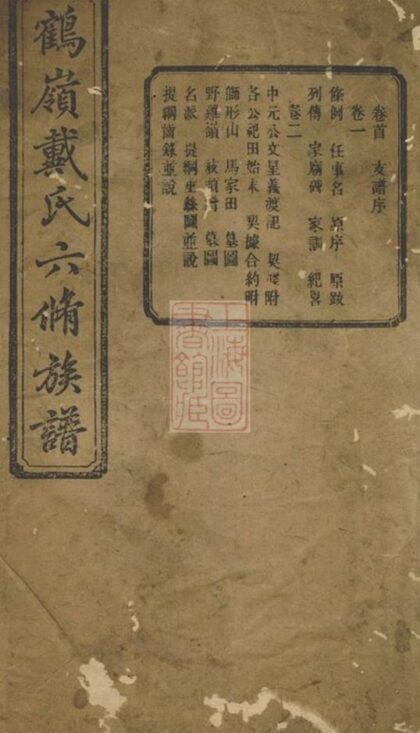 鶴嶺戴氏六脩族譜
卷首　支譜序
卷一
條例　任事名　原序　原跋
列傳　家廟碑　家訓　紀畧
卷二
中元公文呈義渡記　契據附
各公祀田始末　契據合約附
獅形山　馬家田　墓圖
野雞嶺　墓圖
名派　提綱世絲圖並說
提綱齒錄並說
上海圖
書館藏